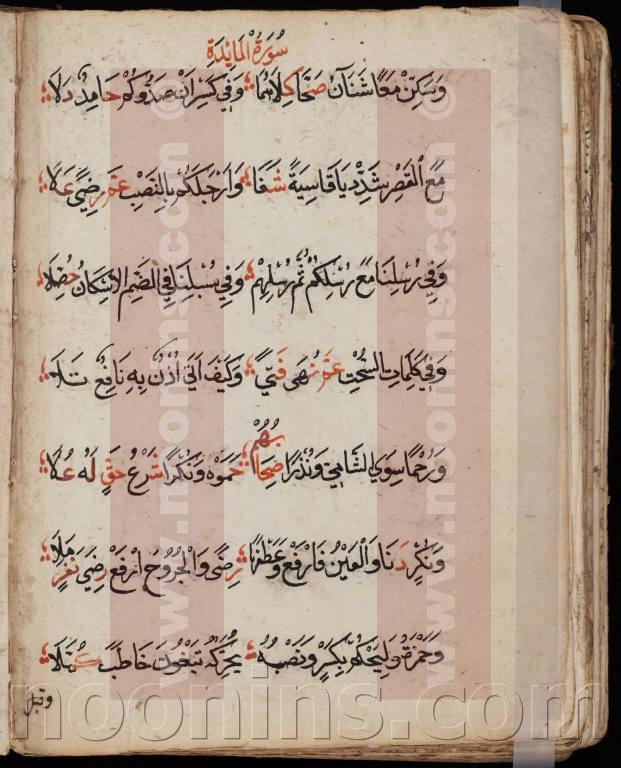 سُورَةُ الْمَائِدَةِ
وَسَكِّنْ مَعًا شَنَآنُ صَحَّا كِلَاهُمَا وَفِي كَسْرِ أَنْ صَدُّوكُمْ حَامِدٌ دَلَا
مَعَ الْقَصْرِ شَدِّدْ يَا قَاسِيَةً شَفَا وَأَرْجُلَكُمْ بِالنَّصْبِ عَمَّ رِضًى عَلَا
وَفِي رُسْلِنَا مَعْ رُسْلِكُمْ ثُمَّ رُسْلِهِمْ وَفِي سُبْلِنَا فِي الضَّمِّ الْاِسْكَانُ حُصِّلَا
وَفِي كَلِمَاتِ السُّحْتِ عَمَّ نُهَى فَتًى وَكَيْفَ أَتَى أُذْنٌ بِهِ نَافِعٌ تَلَا
وَرُحْمًا سِوَى الشَّامِي وَنُذْرًا صِحَابُهُمْ حَمَوْهُ وَنُكْرًا شَرْعُ حَقٍّ لَهُ عُلَا
وَنُكْرٍ دَنَا وَالْعَيْنُ فَارْفَعْ وَعَطْفَهَا رِضًى وَالْجُرُوحَ ارْفَعْ رِضَى نَفَرٍ مَلَا
وَحَمْزَةُ وَلِيَحْكُمْ بِكَسْرٍ وَنَصْبُهُ يُحَرِّكُهُ تَبْغُونَ خَاطَبَ كُمَّلَا
وقبل
www.noonins.com ©
www.noonins.com ©
noonins.com